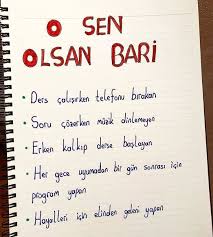 O SEN
OLSAN BARİ
• Ders çalışırken telefonu bırakan
• Soru çözerken müzik dinlemeyen
• Erken kalkıp derse başlayan
• Her gece uyumadan bir gün sonrası için
program yapan
• Hayalleri için elinden geleni yapan